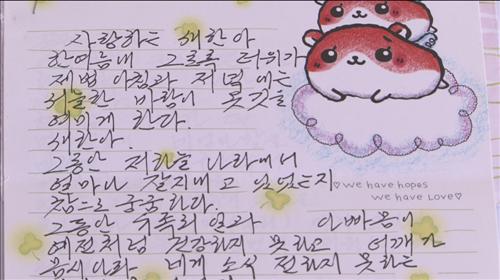 사랑하는 새한아
한여름내 그토록 더위가
제법 아침과 저녁에는
서늘한 바람이 옷깃을
여미게 한다.
새한아.
그동안 저 하늘 나라에서
얼마나 잘지내고 있었는지
참으로 궁궁하다.
그동안 수족의 일과 아빠몸이
예전처럼 건강하지 못하고 어깨가
네게 소식 전하지 못하는
we have hopes
we have Love